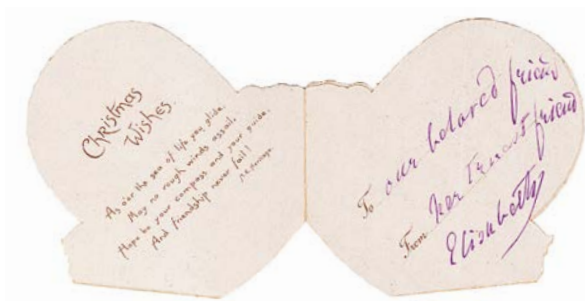 Christmas
Wishes.
As o'er the sea of life you glide,
May no rough winds assail,
Hope be your compass and your guide,
And friendship never fail!
To our beloved friend
From her friend
Elisabetty